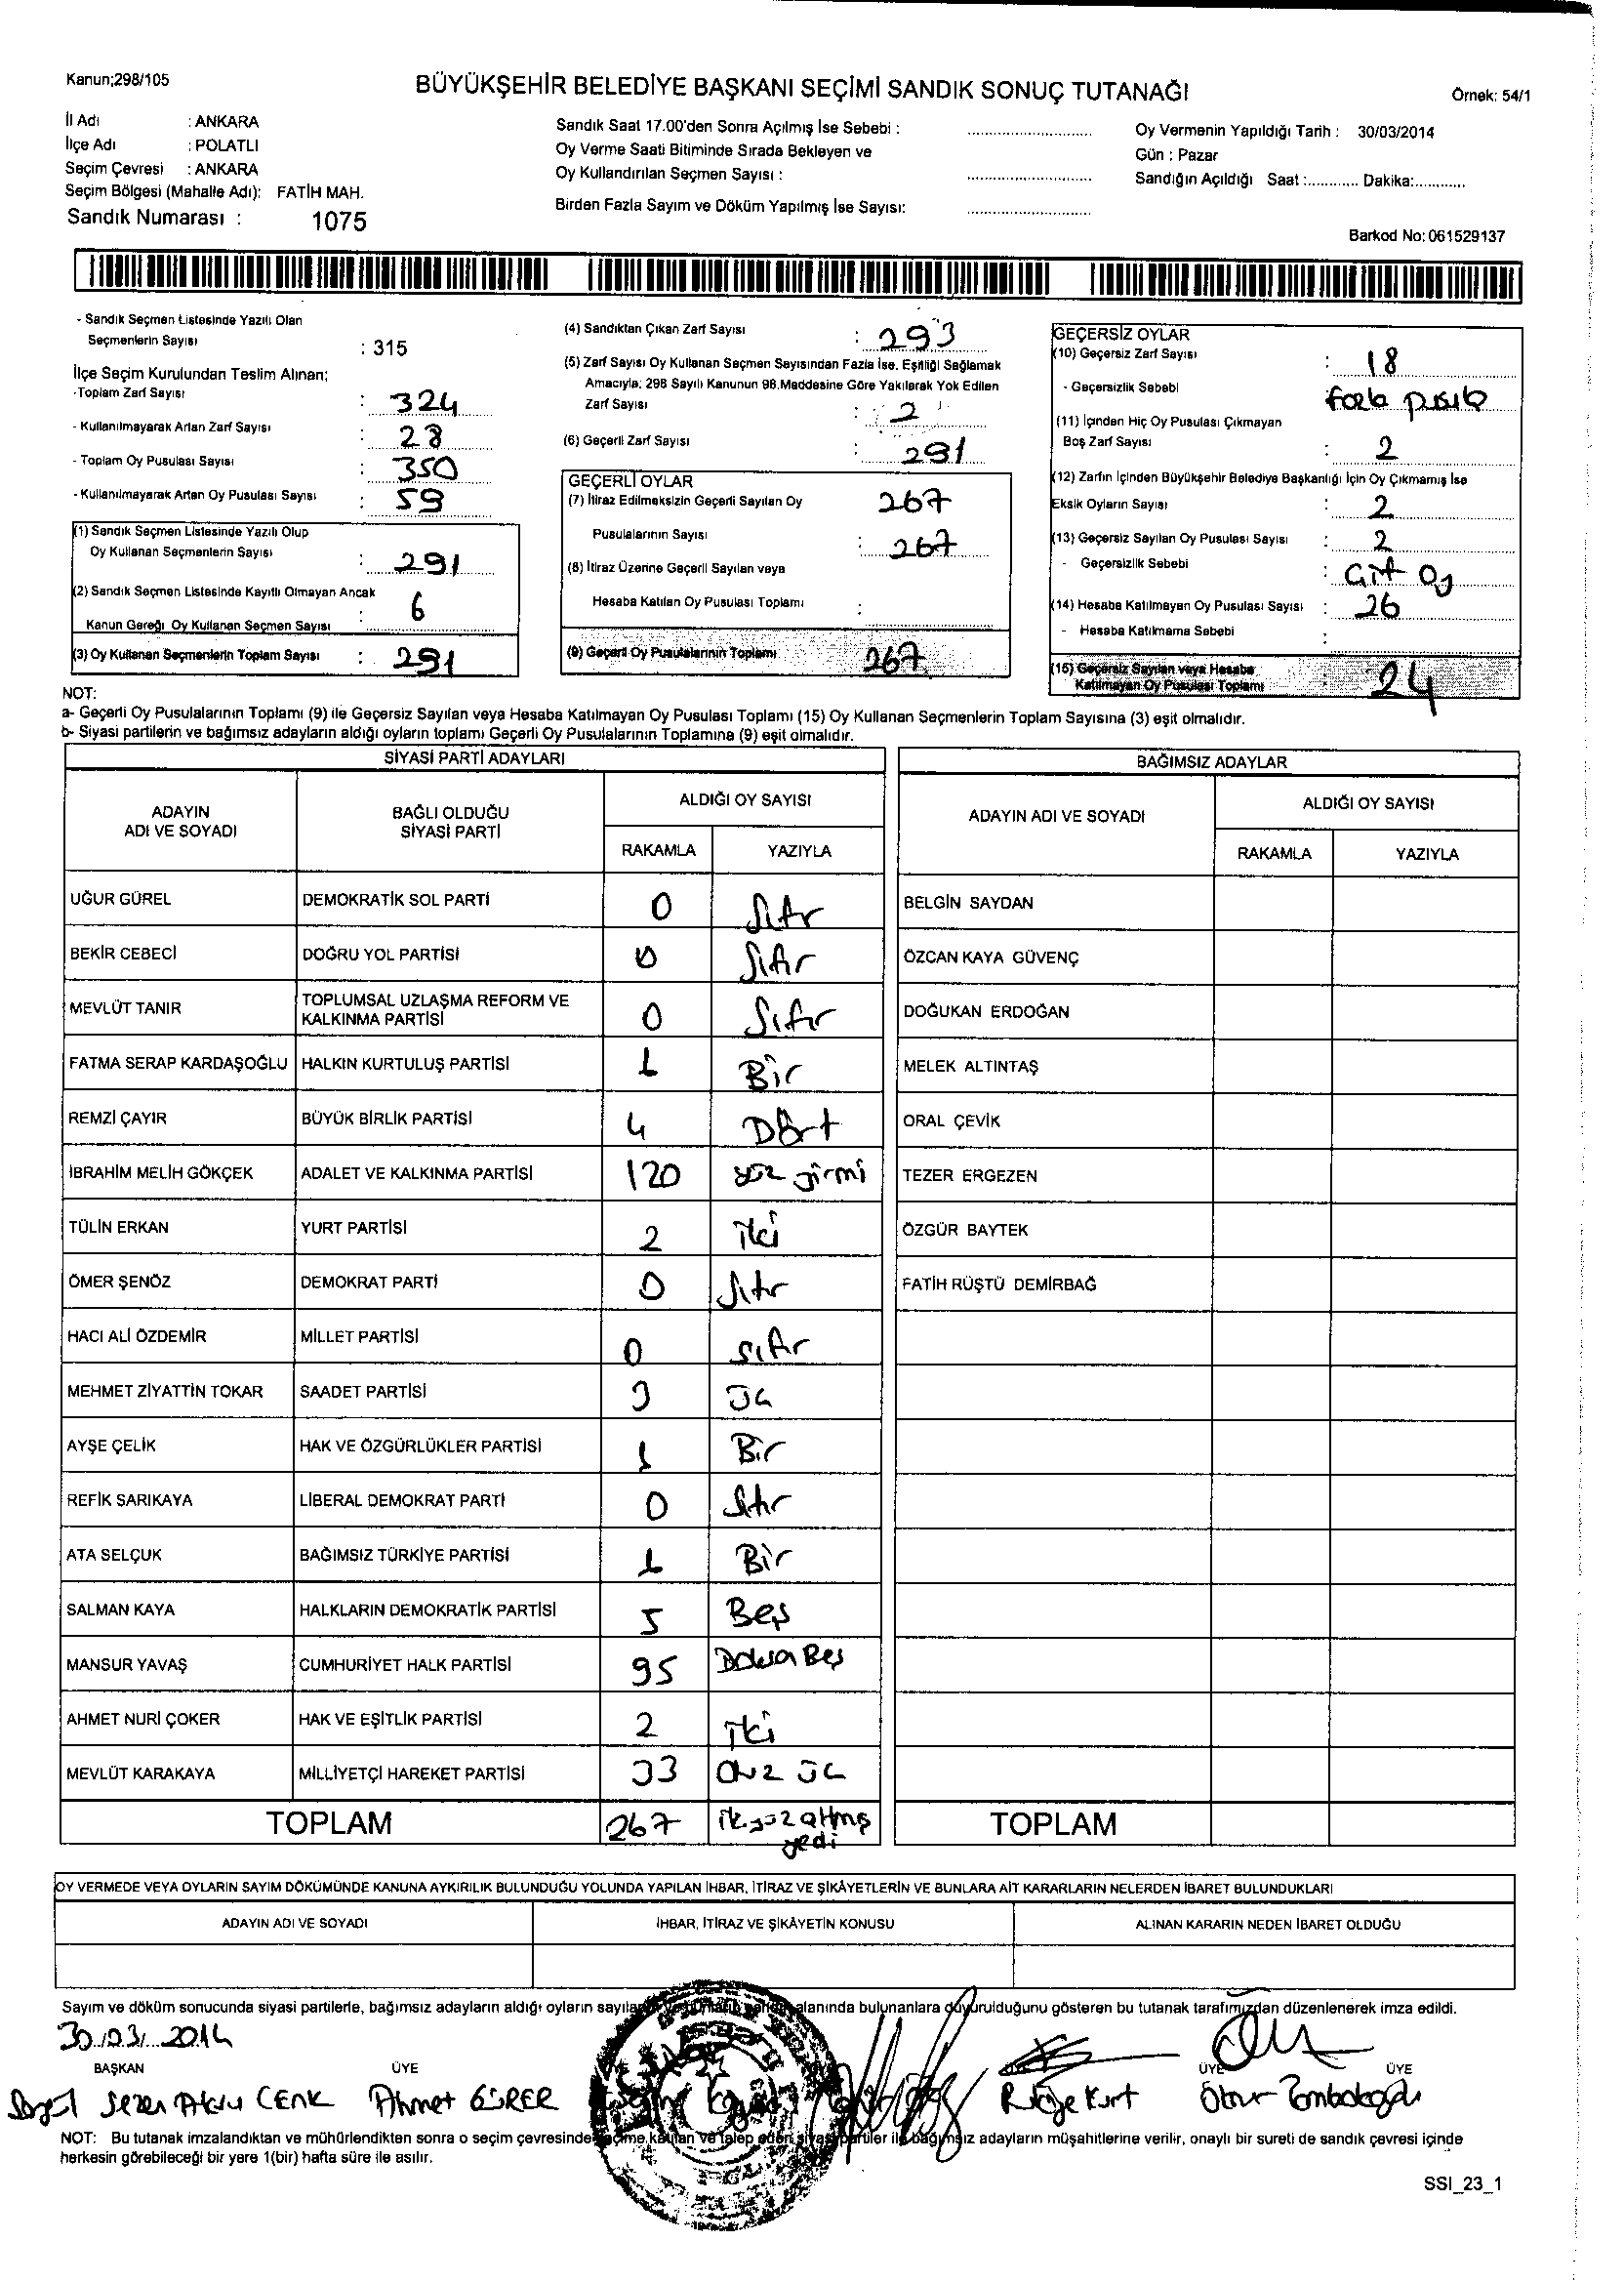 Kanun;298/105
BÜYÜKŞEHİR BELEDİYE BAŞKANI SEÇİMİ SANDIK SONUÇ TUTANAĞI
Örnek: 54/1
İl Adı : ANKARA
İlçe Adı : POLATLI
Seçim Çevresi : ANKARA
Seçim Bölgesi (Mahalle Adı): FATİH MAH.
Sandık Numarası : 1075
Sandık Saat 17.00'den Sonra Açılmış İse Sebebi :
Oy Verme Saati Bitiminde Sırada Bekleyen ve
Oy Kullandırılan Seçmen Sayısı :
Birden Fazla Sayım ve Döküm Yapılmış İse Sayısı:
Oy Vermenin Yapıldığı Tarih : 30/03/2014
Gün : Pazar
Sandığın Açıldığı Saat :............ Dakika:............
Barkod No: 061529137
- Sandık Seçmen Listesinde Yazılı Olan
Seçmenlerin Sayısı : 315
İlçe Seçim Kurulundan Teslim Alınan;
-Toplam Zarf Sayısı : 324
- Kullanılmayarak Artan Zarf Sayısı : 28
- Toplam Oy Pusulası Sayısı : 350
- Kullanılmayarak Artan Oy Pusulası Sayısı : 59
(1) Sandık Seçmen Listesinde Yazılı Olup
Oy Kullanan Seçmenlerin Sayısı : 291
(2) Sandık Seçmen Listesinde Kayıtlı Olmayan Ancak
Kanun Gereği Oy Kullanan Seçmen Sayısı : 6
(3) Oy Kullanan Seçmenlerin Toplam Sayısı : 291
(4) Sandıktan Çıkan Zarf Sayısı : 293
(5) Zarf Sayısı Oy Kullanan Seçmen Sayısından Fazla İse, Eşitliği Sağlamak
Amacıyla; 298 Sayılı Kanunun 98.Maddesine Göre Yakılarak Yok Edilen
Zarf Sayısı : 2
(6) Geçerli Zarf Sayısı : 291
GEÇERLİ OYLAR
(7) İtiraz Edilmeksizin Geçerli Sayılan Oy 267
Pusulalarının Sayısı : 267
(8) İtiraz Üzerine Geçerli Sayılan veya
Hesaba Katılan Oy Pusulası Toplamı :
(9) Geçerli Oy Pusulalarının Toplamı 267
GEÇERSİZ OYLAR
(10) Geçersiz Zarf Sayısı : 18
- Geçersizlik Sebebi
(11) İçinden Hiç Oy Pusulası Çıkmayan
Boş Zarf Sayısı : 2
(12) Zarfın İçinden Büyükşehir Belediye Başkanlığı İçin Oy Çıkmamış İse
Eksik Oyların Sayısı : 2
(13) Geçersiz Sayılan Oy Pusulası Sayısı : 2
- Geçersizlik Sebebi : Çift Oy
(14) Hesaba Katılmayan Oy Pusulası Sayısı : 26
- Hesaba Katılmama Sebebi :
(15) Geçersiz Sayılan veya Hesaba
Katılmayan Oy Pusulası Toplamı : 24
NOT:
a- Geçerli Oy Pusulalarının Toplamı (9) ile Geçersiz Sayılan veya Hesaba Katılmayan Oy Pusulası Toplamı (15) Oy Kullanan Seçmenlerin Toplam Sayısına (3) eşit olmalıdır.
b- Siyasi partilerin ve bağımsız adayların aldığı oyların toplamı Geçerli Oy Pusulalarının Toplamına (9) eşit olmalıdır.
SİYASİ PARTİ ADAYLARI
ADAYIN ADI VE SOYADI BAĞLI OLDUĞU SİYASİ PARTİ ALDIĞI OY SAYISI
RAKAMLA YAZIYLA
UĞUR GÜREL DEMOKRATİK SOL PARTİ 0 Sıfır
BEKİR CEBECİ DOĞRU YOL PARTİSİ 0 Sıfır
MEVLÜT TANIR TOPLUMSAL UZLAŞMA REFORM VE KALKINMA PARTİSİ 0 Sıfır
FATMA SERAP KARDAŞOĞLU HALKIN KURTULUŞ PARTİSİ 1 Bir
REMZİ ÇAYIR BÜYÜK BİRLİK PARTİSİ 4 Dört
İBRAHİM MELİH GÖKÇEK ADALET VE KALKINMA PARTİSİ 120 yüz yirmi
TÜLİN ERKAN YURT PARTİSİ 2 iki
ÖMER ŞENÖZ DEMOKRAT PARTİ 0 Sıfır
HACI ALİ ÖZDEMİR MİLLET PARTİSİ 0 sıfır
MEHMET ZİYATTİN TOKAR SAADET PARTİSİ 3 üç
AYŞE ÇELİK HAK VE ÖZGÜRLÜKLER PARTİSİ 1 Bir
REFİK SARIKAYA LİBERAL DEMOKRAT PARTİ 0 Sıfır
ATA SELÇUK BAĞIMSIZ TÜRKİYE PARTİSİ 1 Bir
SALMAN KAYA HALKLARIN DEMOKRATİK PARTİSİ 5 Beş
MANSUR YAVAŞ CUMHURİYET HALK PARTİSİ 95 Doksan Beş
AHMET NURİ ÇOKER HAK VE EŞİTLİK PARTİSİ 2 iki
MEVLÜT KARAKAYA MİLLİYETÇİ HAREKET PARTİSİ 33 Otuz üç
TOPLAM 267 ikiyüz altmış
yedi
BAĞIMSIZ ADAYLAR
ADAYIN ADI VE SOYADI ALDIĞI OY SAYISI
RAKAMLA YAZIYLA
BELGİN SAYDAN
ÖZCAN KAYA GÜVENÇ
DOĞUKAN ERDOĞAN
MELEK ALTINTAŞ
ORAL ÇEVİK
TEZER ERGEZEN
ÖZGÜR BAYTEK
FATİH RÜŞTÜ DEMİRBAĞ
TOPLAM
OY VERMEDE VEYA OYLARIN SAYIM DÖKÜMÜNDE KANUNA AYKIRILIK BULUNDUĞU YOLUNDA YAPILAN İHBAR, İTİRAZ VE ŞİKÂYETLERİN VE BUNLARA AİT KARARLARIN NELERDEN İBARET BULUNDUKLARI
ADAYIN ADI VE SOYADI İHBAR, İTİRAZ VE ŞİKÂYETİN KONUSU ALINAN KARARIN NEDEN İBARET OLDUĞU
Sayım ve döküm sonucunda siyasi partilerle, bağımsız adayların aldığı oyların alanında bulunanlara duyurulduğunu gösteren bu tutanak tarafımızdan düzenlenerek imza edildi.
30.03.2014
BAŞKAN ÜYE ÜYE ÜYE
CENK Ahmet GÜRER Kurt
NOT: Bu tutanak imzalandıktan ve mühürlendikten sonra o seçim çevresinde seçime katılan ve talep eden siyasi partiler ile bağımsız adayların müşahitlerine verilir, onaylı bir sureti de sandık çevresi içinde
herkesin görebileceği bir yere 1(bir) hafta süre ile asılır.
SSI_23_1